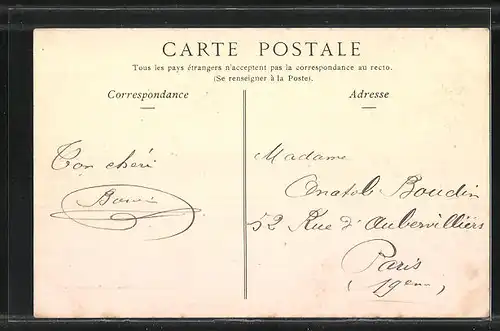 CARTE POSTALE
Tous les pays étrangers n'acceptent pas la correspondance au recto.
(Se renseigner à la Poste).
Correspondance
Ton chéri
Adresse
Madame
Anatole Boudin
52 Rue d'Aubervilliers
Paris
(19em)